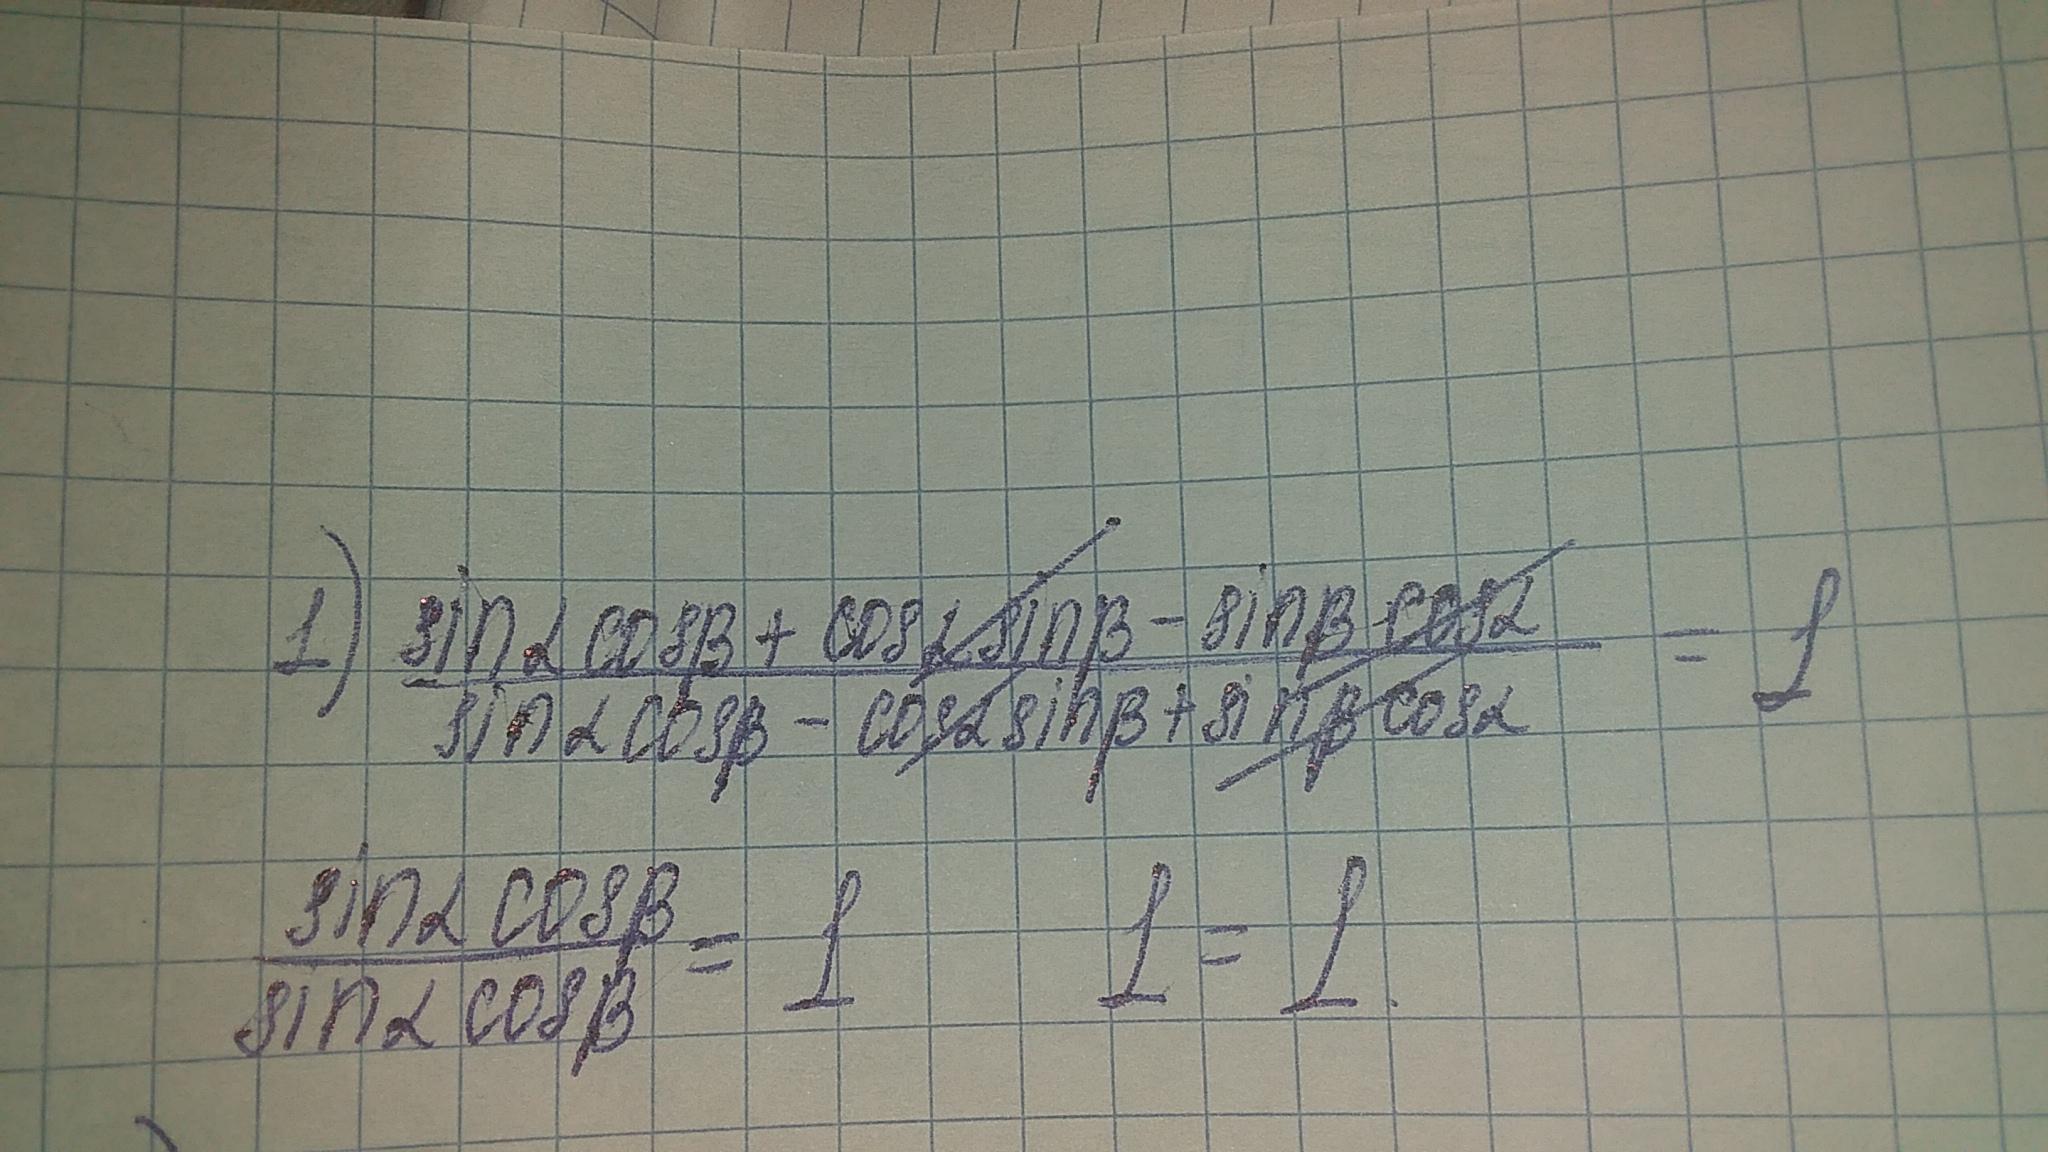 1) (sinα cosβ + cosα sinβ - sinβ cosα) / (sinα cosβ - cosα sinβ + sinβ cosα) = 1
sinα cosβ / sinα cosβ = 1 1 = 1.
)